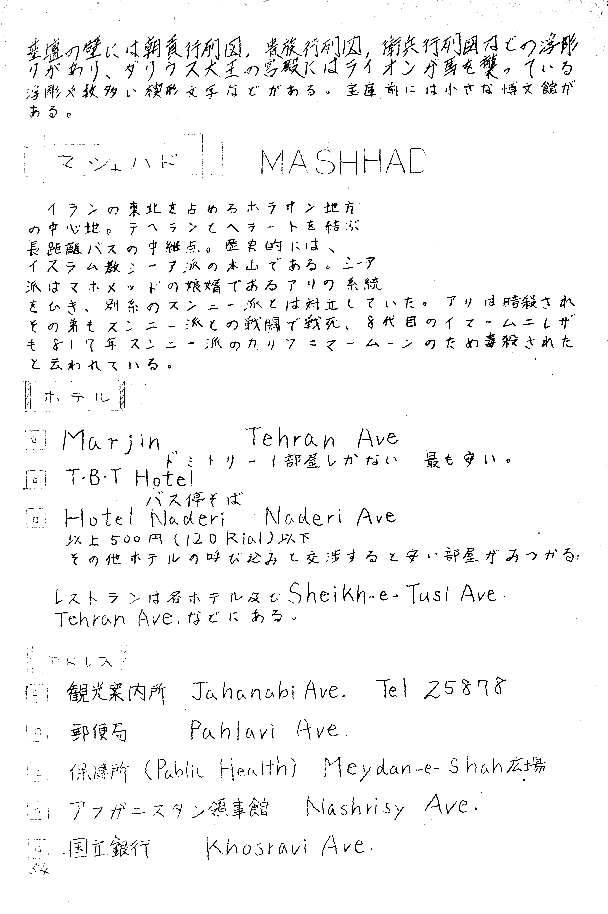 基壇の壁には朝貢行列図，貴族行列図，衛兵行列図などの浮彫
りがあり、ダリウス大王の宮殿にはライオンが馬を襲っている
浮彫や数多い楔形文字などがある。宝庫前には小さな博文館が
ある。
マシェハド MASHHAD
イランの東北を占めるホラサン地方
の中心地。テヘランとヘラートを結ぶ
長距離バスの中継点。歴史的には、
イスラム教シーア派の本山である。シーア
派はマホメッドの娘婿であるアリの系統
をひき、別系のスンニー派とは対立していた。アリは暗殺され
その弟もスンニー派との戦闘で戦死、8代目のイマームニレザ
も817年スンニー派のカリフニマームーンのため毒殺された
と云われている。
ホテル
Marjin Tehran Ave
ドミトリー1部屋しかない 最も安い。
T・B・T Hotel
バス停そば
Hotel Naderi Naderi Ave
以上500円(120Rial)以下
その他ホテルの呼び込みと交渉すると安い部屋がみつかる。
レストランは各ホテル及びSheikh-e-Tusi Ave.
Tehran Ave.などにある。
アドレス
観光案内所 Jahanabi Ave. Tel 25878
郵便局 Pahlavi Ave.
保健所 (Public Health) Meydan-e-Shah広場
アフガニスタン領事館 Nashrisy Ave.
国立銀行 Khosravi Ave.
34